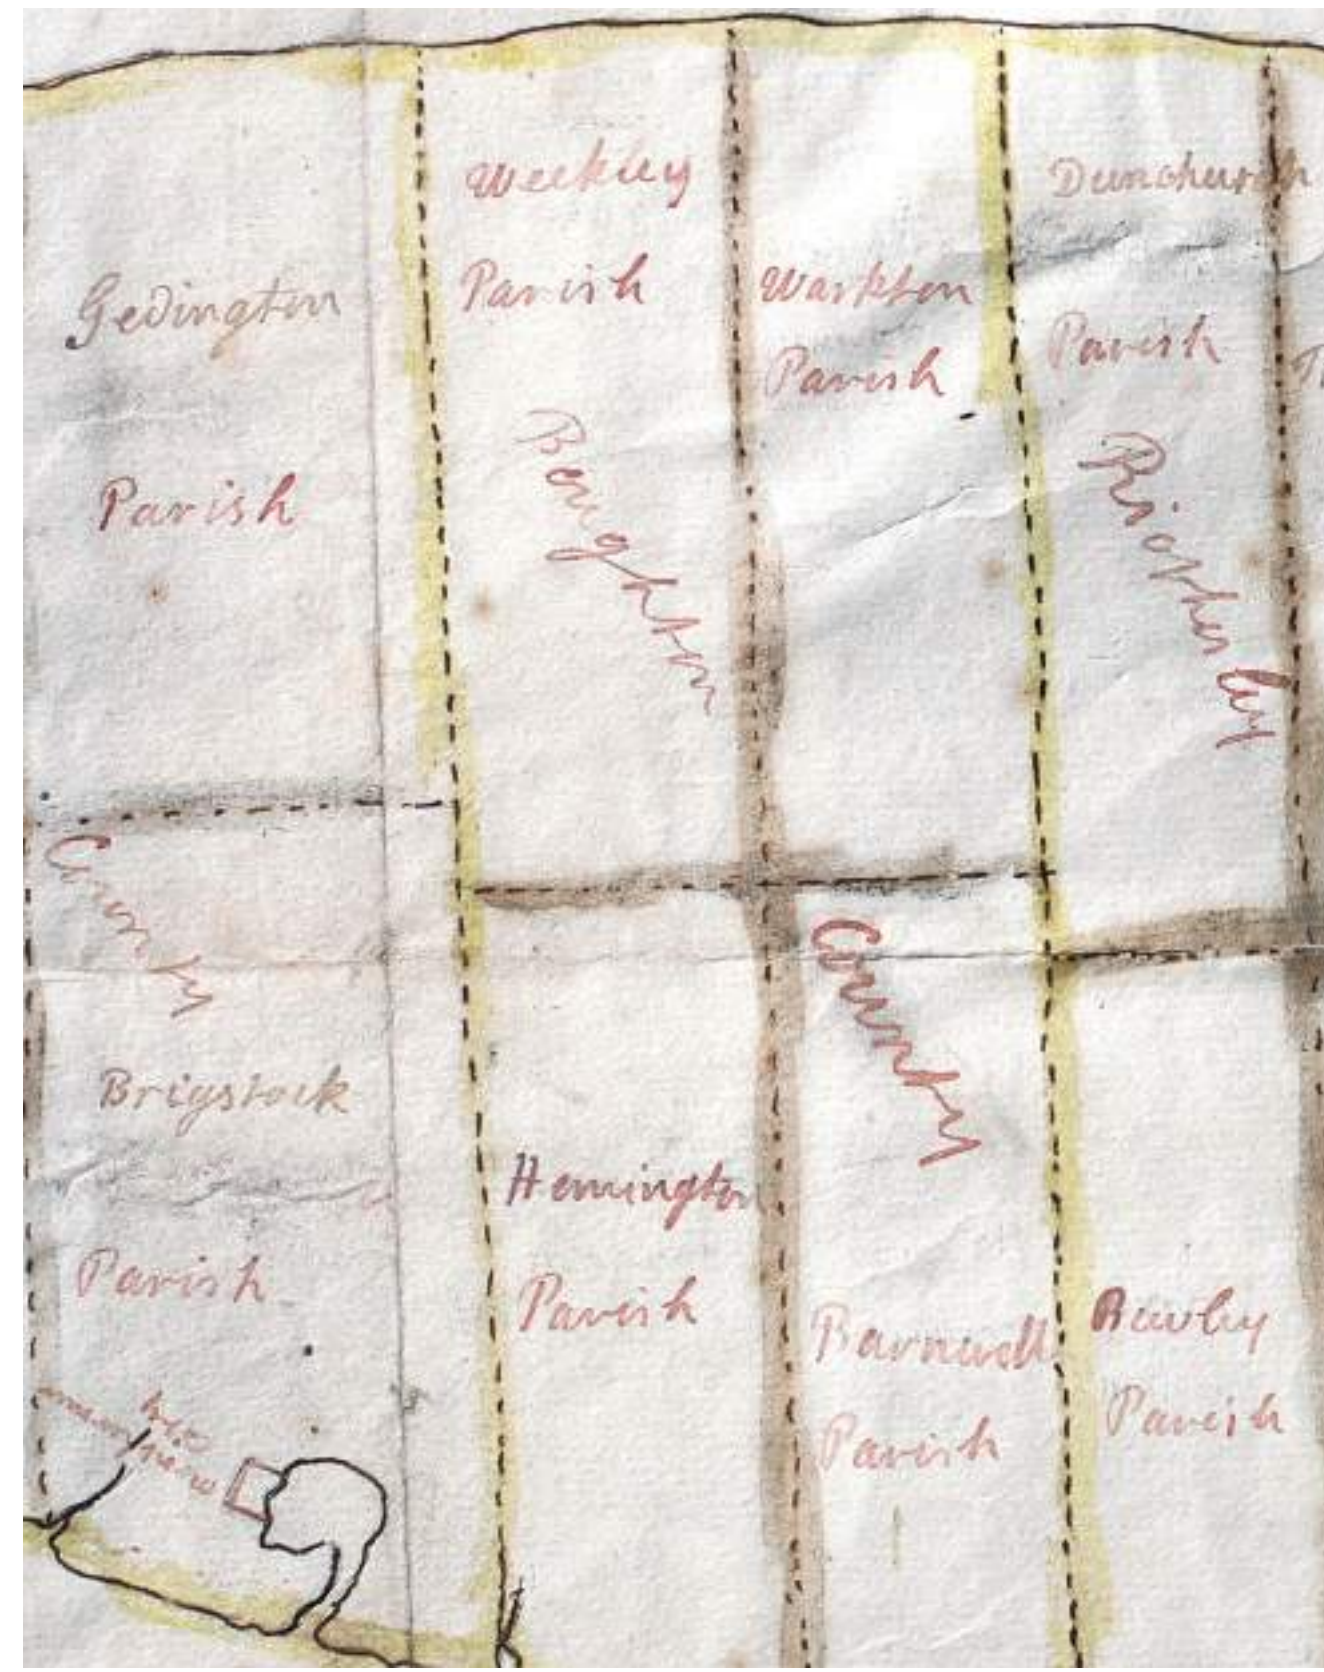 Gedington
Parish
Weekley
Parish
Boughton
Warkton
Parish
Dunchurch
Parish
County
Brigstock
Parish
Hemington
Parish
County
Barnwell
Parish
Parish